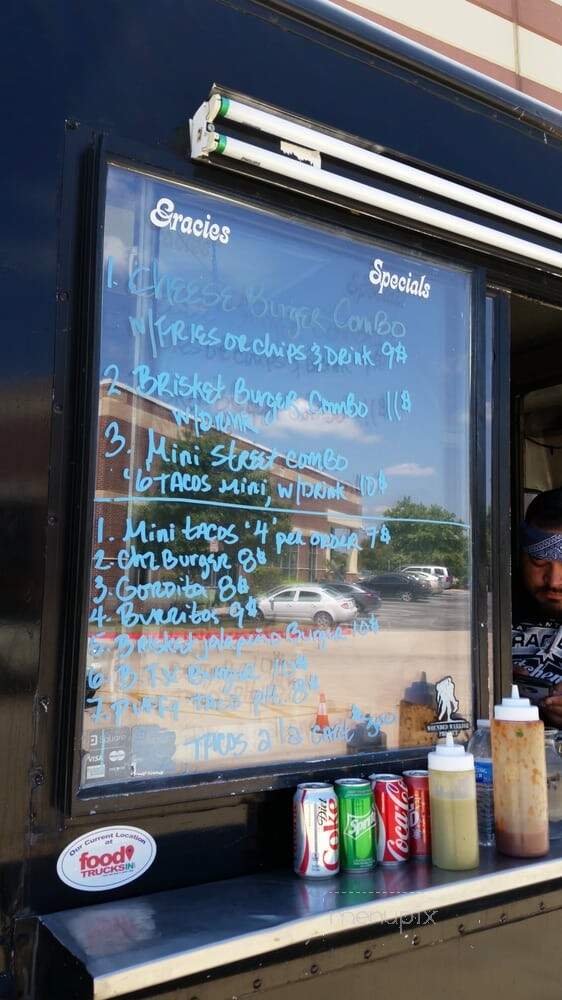 Gracies
Specials
1. Cheese Burger Combo
w/Fries or chips & Drink 9$
2. Brisket Burger Combo 11$
w/Drink
3. Mini Street combo
"6" Tacos Mini, w/Drink 10$
1. Mini tacos "4" per order 7$
2. Burger 8$
3. Gordita 8$
4. Burritos 9$
5. Brisket Jalapeño Burger 10$
6 B. TX Burger
7. Puffy Taco Plt. 8$
Tacos a la Cart
Square
VISA
WOUNDED WARRIOR
PROJECT
Our Current Location
at
food
TRUCKSIN
Diet
Coke
Sprite
Coca
menupix